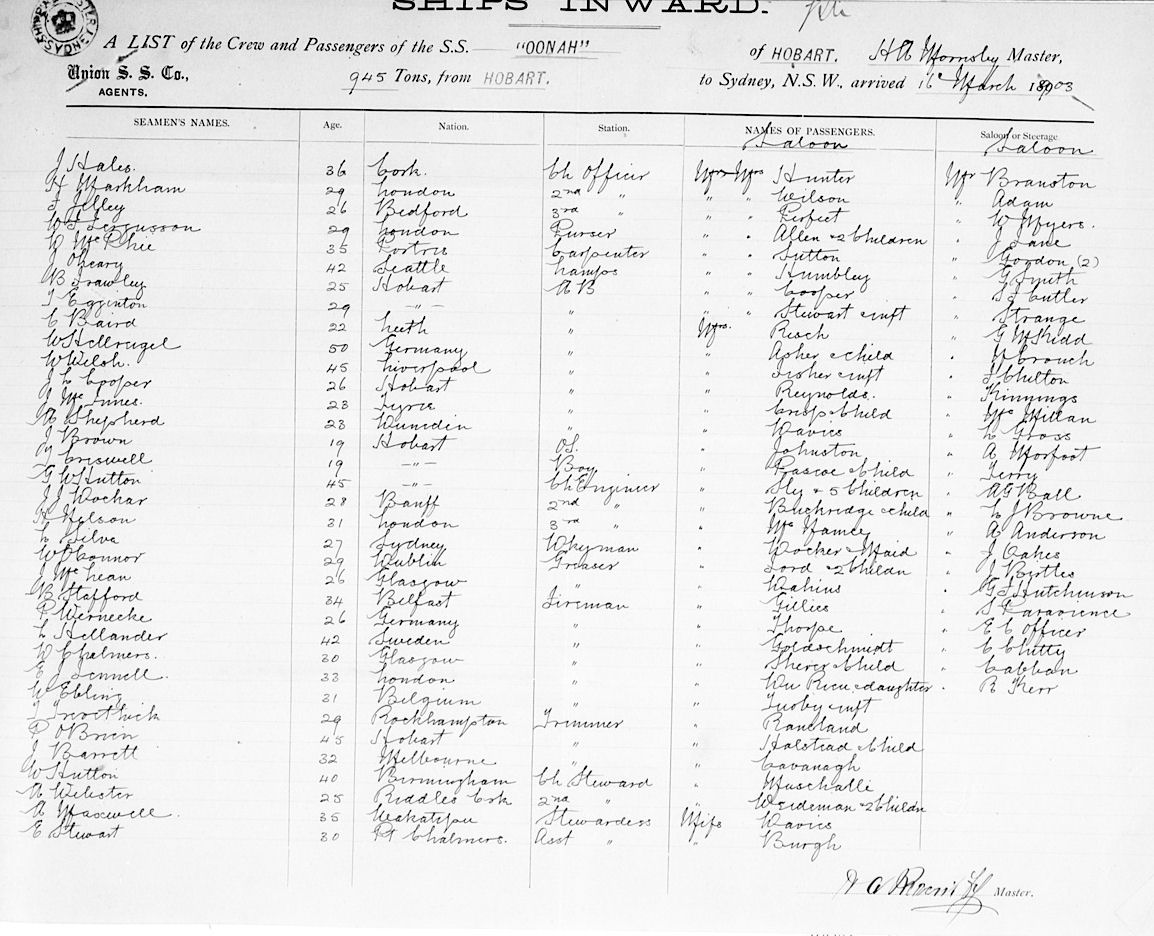 SHIPS INWARD.
A LIST of the Crew and Passengers of the S.S. "OONAH" of HOBART. Master,
Union S. S. Co., 945 Tons, from HOBART. to Sydney, N.S.W., arrived 16 March 1903
AGENTS,
SEAMEN'S NAMES. Age. Nation. Station. NAMES OF PASSENGERS. Saloon or Steerage.
Saloon Saloon
J Hales. 36 Cork. Ch Officer Mr Mrs Hunter Mr Branston
H Markham 29 London 2nd " " " Wilson " Adam
F Jelley 26 Bedford 3rd " " " Perfect " W Myers.
W J Fergusson 29 London Purser " " Allen & 2 Children " J Lane
W McPhee 35 Portree Carpenter " " Sutton " Gordon (2)
J Cleary 42 Seattle Lamps " " Humbley " G Smith
B Frawley 25 Hobart A B " " Cooper " Cutler
J Egginton 29 -"- " " " Stewart & inft " Strange
C Baird 22 Leith " Mrs. Risch " G McKidd
W Hellrugel 50 Germany " " Asher & child " Crouch
W Welsh. 45 Liverpool " " Fisher & inft " Chilton
J L Cooper 26 Hobart " " Reynolds. " Kinnings
J McInnes. 23 Tyree " " Crisp & Child " McMillan
A Shepherd 23 Dunedin " " Davies " L Gross
J Brown 19 Hobart O.S. " Johnston " A Morfoot
Criswell 19 -"- Boy " Pascoe & child " Terry
G W Hutton 45 -"- Ch Engineer " Sly & 5 Children " A G Ball
J J Dochar 28 Banff 2nd " " Buckridge & child " L J Browne
H Nelson 31 London 3rd " " McNamee " A Anderson
L Silva 27 Sydney Dkeyman " Docker & Maid " J Oakes
W O'Connor 29 Dublin Greaser " Lord & 2 Childn " J Birtles
J McLean 26 Glasgow " " Dakins " G J Hutchinson
B Stafford 34 Belfast Fireman " Gillies " S
P Wernecke 26 Germany " " Thorpe " E C Officer
L Hellander 42 Sweden " " Goldschmidt " C Chitty
W Chalmers. 30 Glasgow " " & Child " Cabban
E Fennell. 33 London " " & daughter " R Kerr
W Ebling 31 Belgium " " Lusby & inft
J Trevethick 29 Rockhampton Trimmer " Raneland
P O'Brien 45 Hobart " " Halstead & Child
J Barrett 32 Melbourne " " Cavanagh
W Hutton 40 Birmingham Ch Steward " Muschalli
A Webster 25 Riddles Crk 2nd " " Weideman & 2 Childn
A Maxwell. 35 Wakatipu Stewardess Miss Davies
E Stewart 30 Pt Chalmers. Asst " " Burgh
Master.